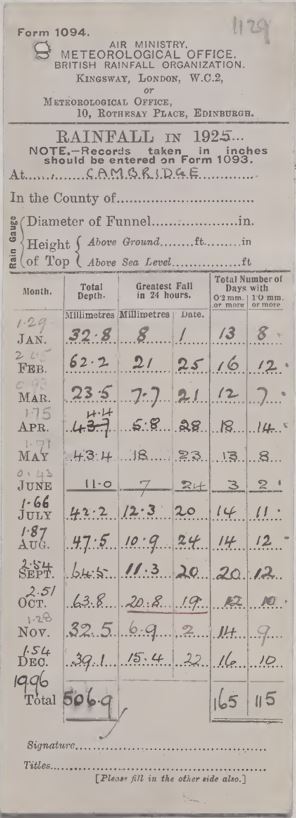 1129
Form 1094.
AIR MINISTRY.
METEOROLOGICAL OFFICE.
BRITISH RAINFALL ORGANIZATION.
KINGSWAY, LONDON, W.C.2,
or
METEOROLOGICAL OFFICE,
10, ROTHESAY PLACE, EDINBURGH.
RAINFALL IN 1925...
NOTE.—Records taken in inches
should be entered on Form 1093.
At CAMBRIDGE
In the County of
Rain Gauge
Diameter of Funnel in.
Height of Top
Above Ground ft. in
Above Sea Level ft
Month. Total Depth. Greatest Fall in 24 hours. Total Number of Days with
0·2 mm. or more 1·0 mm. or more
Millimetres Millimetres Date.
1.29
JAN. 32.8 8 1 13 8
FEB. 62.2 21 25 16 12
0.93
MAR. 23.5 7.7 21 12 7
1.75 44.4
APR. 43.7 5.8 28 18 14
1.71
MAY 43.4 18 23 13 8
0.43
JUNE 11.0 7 24 3 2
1.66
JULY 42.2 12.3 20 14 11
1.87
AUG. 47.5 10.9 24 14 12
2.54
SEPT. 64.5 11.3 20 20 12
2.51
OCT. 63.8 20.8 19 12 10
1.28
NOV. 32.5 6.9 2 14 9
1.54
DEC. 39.1 15.4 22 16 10
19.96
Total 506.9 165 115
Signature
Titles
[Please fill in the other side also.]